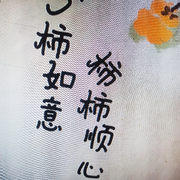 柿如意
柿顺心